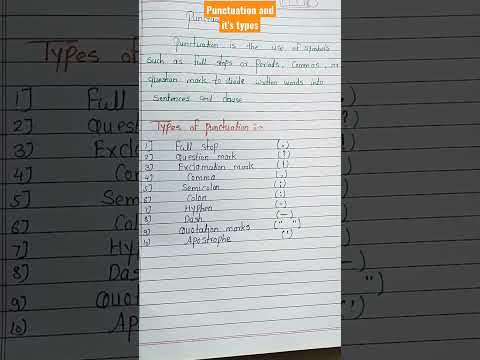 Punctuation and
it's types
Punctuation is the use of symbols
such as full stops or Periods, Commas, or
question mark to divide written words into
sentences and clause
Types of punctuation :-
1] Full stop (.)
2] Question mark (?)
3] Exclamation mark (!)
4] Comma (,)
5] Semicolon (;)
6] Colon (:)
7] Hyphen (-)
8] Dash (—)
9] Quotation marks (" ")
10] Apostrophe (')